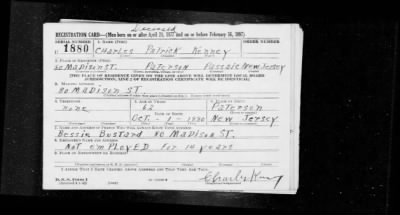 Deceased
REGISTRATION CARD—(Men born on or after April 28, 1877 and on or before February 16, 1897)
SERIAL NUMBER 1. NAME (Print) ORDER NUMBER
1880 Charles Patrick Kenney
2. PLACE OF RESIDENCE (Print)
80 Madison St. Paterson Passaic New Jersey
[THE PLACE OF RESIDENCE GIVEN ON THE LINE ABOVE WILL DETERMINE LOCAL BOARD
JURISDICTION; LINE 2 OF REGISTRATION CERTIFICATE WILL BE IDENTICAL]
3. MAILING ADDRESS
80 Madison ST.
4. TELEPHONE 5. AGE IN YEARS 6. PLACE OF BIRTH
none 62 Paterson
Oct - 1 - New Jersey
7. NAME AND ADDRESS OF PERSON WHO WILL ALWAYS KNOW YOUR ADDRESS
Bessie Bustard 80 Madison ST.
8. EMPLOYER'S NAME AND ADDRESS
Not employed for 14 years
9. PLACE OF EMPLOYMENT OR BUSINESS
I AFFIRM THAT I HAVE VERIFIED ABOVE ANSWERS AND THAT THEY ARE TRUE.
D. S. S. Form 1
Charles